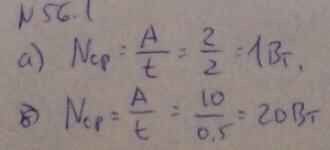 N 56.1
а) Nср = A/t = 2/2 = 1 Вт,
в) Nср = A/t = 10/0,5 = 20 Вт